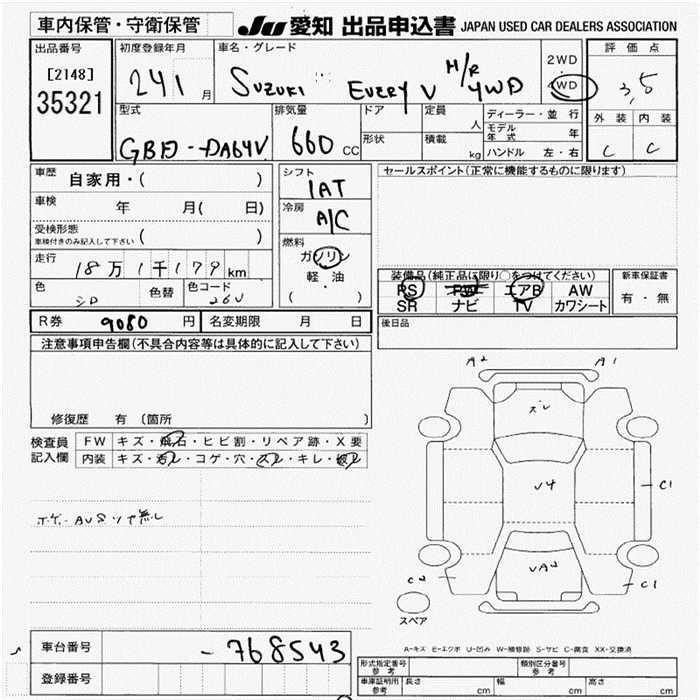 車内保管・守衛保管
JU 愛知 出品申込書 JAPAN USED CAR DEALERS ASSOCIATION
出品番号
[2148]
35321
初度登録年月
24 1 月
車名・グレード
SUZUKI EVERY V H/R 4WD
2WD
4WD
評価点
3,5
外装 内装
C C
型式
GBD-DA64V
排気量
660 CC
ドア
形状
定員
人
積載
kg
ディーラー・並 行
モデル年式 年
ハンドル 左・右
車歴
自家用・( )
車検 年 月( 日)
受検形態
車検付きのみ記入して下さい ( )
走行 18万1千179 km
色
色替
色コード
26U
シフト
IAT
冷房
A/C
燃料
ガソリン
軽・油
( )
セールスポイント(正常に機能するものに限ります)
装備品(純正品に限り○をつけてください)
PS PW エアB AW
SR ナビ TV カワシート
新車保証書
有・無
後日品
R券 9080 円 名変期限 月 日
注意事項申告欄(不具合内容等は具体的に記入して下さい)
修復歴 有 (箇所 )
検査員記入欄
FW キズ・飛石・ヒビ割・リペア跡・X要
内装 キズ・汚レ・コゲ・穴・スレ・キレ・破レ
A2 A1
スレ
U4
C1
UA2
C2
C1
スペア
A-キズ E-エクボ U-凹み W-補修跡 S-サビ C-腐食 XX-交換済
車台番号 -768543
登録番号
形式指定番号 参考
類別区分番号 参考
車庫証明用 参考 長さ cm 幅 cm 高さ cm